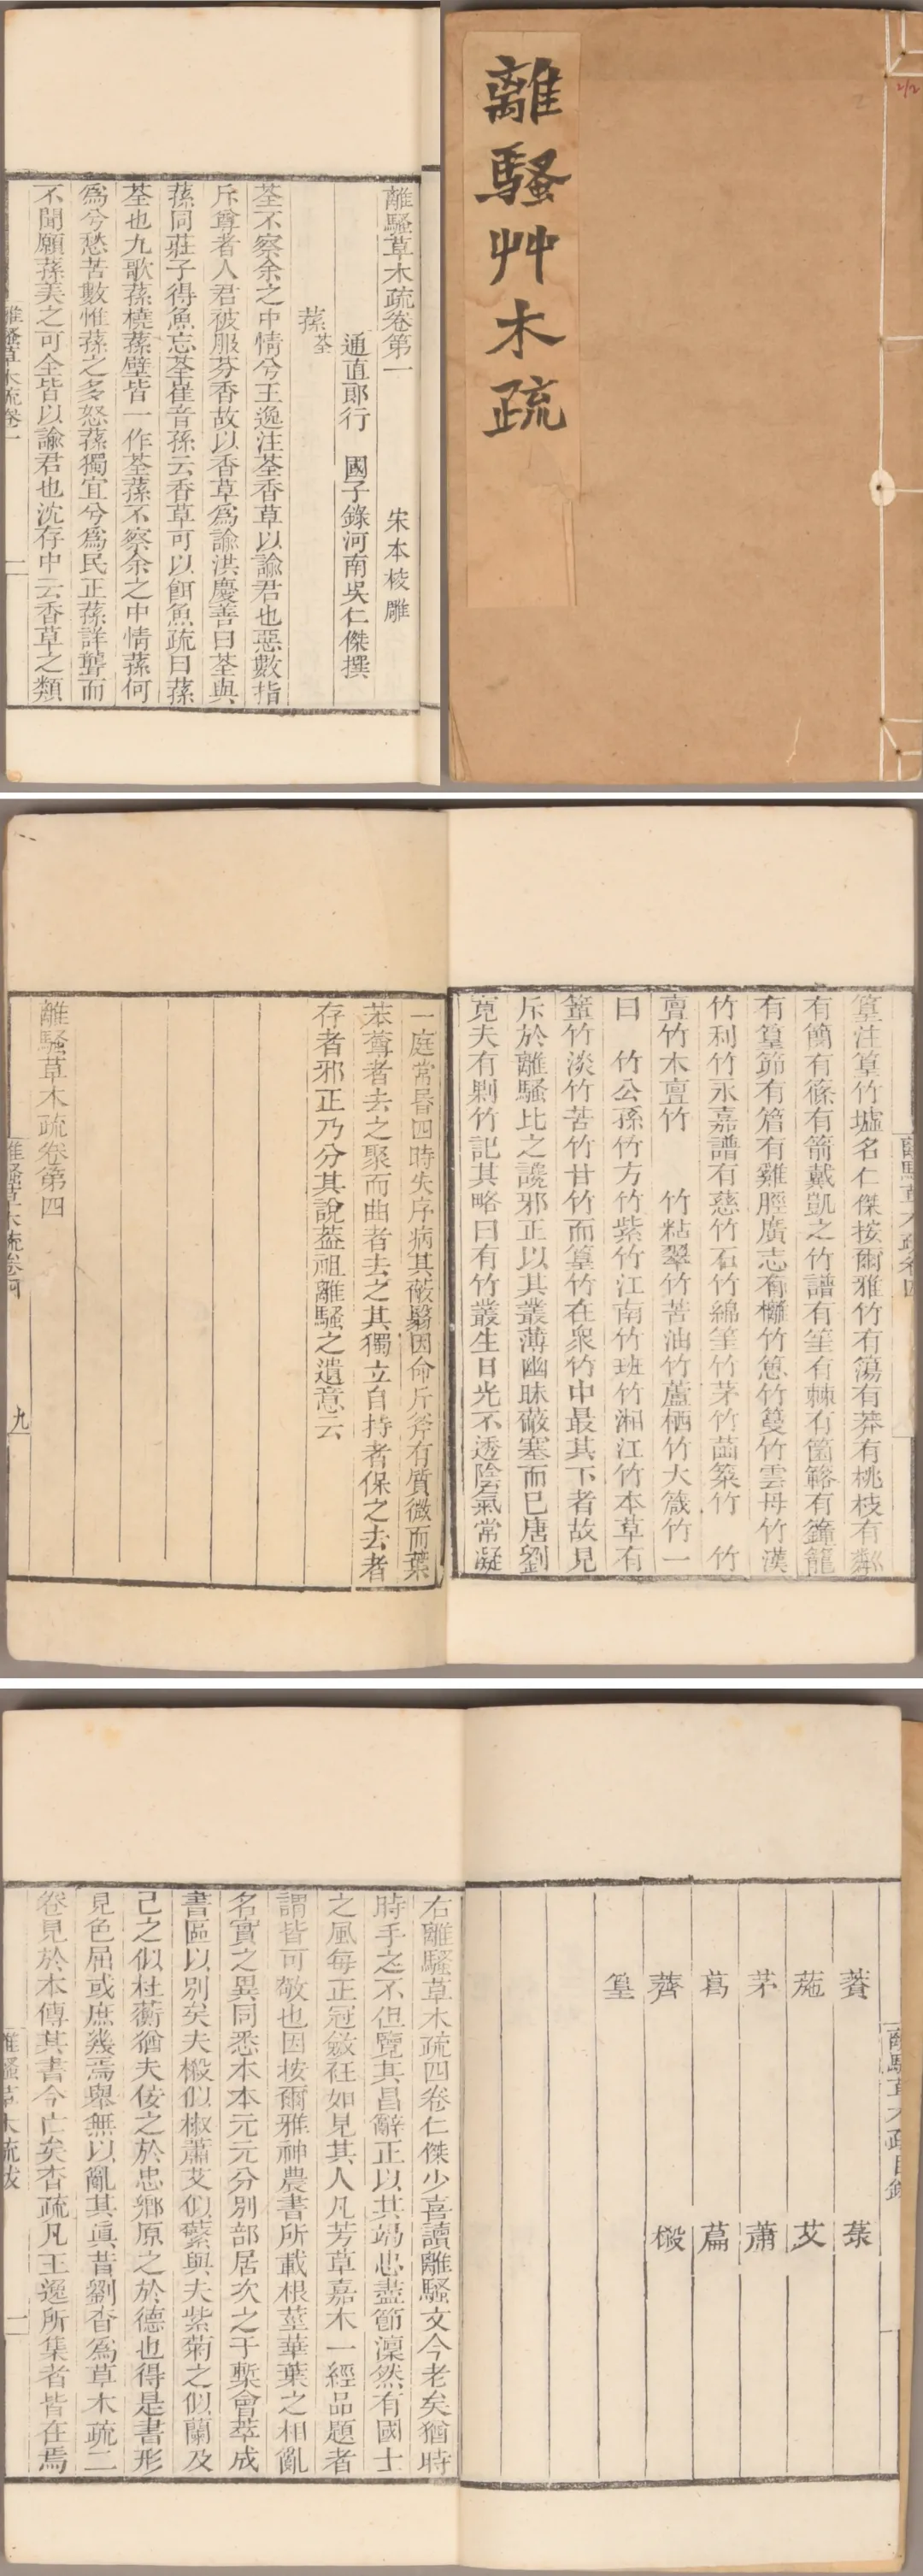 離騷艸木疏
離騷草木疏卷第一
宋本校雕
通直郎行 國子錄河南吳仁傑撰
蓀荃
荃不察余之中情兮王逸注荃香草以諭君也惡數指
斥尊者人君被服芬香故以香草爲諭洪慶善曰荃與
蓀同莊子得魚忘荃崔音孫云香草可以餌魚疏曰蓀
荃也九歌蓀橈蓀壁皆一作荃蓀不察余之中情蓀何
爲兮愁苦數惟蓀之多怒蓀獨宜兮爲民正蓀詳聾而
不聞願蓀美之可全皆以諭君也沈存中云香草之類
離騷草木疏卷一
一
離騷草木疏卷四
篁注篁竹墟名仁傑按爾雅竹有簜有莽有桃枝有粼
有簡有篠有箭戴凱之竹譜有筀有棘有箘簵有鐘籠
有篁筯有箮有雞脛廣志有䉠竹箽竹蔓竹雲母竹漢
竹利竹永嘉譜有慈竹石竹綿筀竹茅竹䈽䈞竹 竹
亶竹木亶竹 竹粘翠竹苦油竹蘆栖竹大箴竹一
曰 竹公孫竹方竹紫竹江南竹班竹湘江竹本草有
䈽竹淡竹苦竹甘竹而篁竹在衆竹中最其下者故見
斥於離騷比之讒邪正以其叢薄幽昧蔽塞而已唐劉
寬夫有剿竹記其略曰有竹叢生日光不透陰氣常凝
一庭常昬四時失序病其蔽翳因命斤斧有質微而葉
苯䔿者去之聚而曲者去之其獨立自持者保之去者
存者邪正乃分其說葢祖離騷之遺意云
離騷草木疏卷第四
離騷草木疏卷四
九
離騷草木疏目錄
薋 菉
葹 艾
茅 蕭
葛 萹
薺 樧
篁
右離騷草木疏四卷仁傑少喜讀離騷文今老矣猶時
時手之不但覽其昌辭正以其竭忠盡節凜然有國士
之風每正冠斂衽如見其人凡芳草嘉木一經品題者
謂皆可敬也因按爾雅神農書所載根莖華葉之相亂
名實之異同悉本本元元分別部居次之于槧會萃成
書區以別矣夫樧似椒蕭艾似蘩與夫紫菊之似蘭及
己之似杜蘅猶夫佞之於忠鄉原之於德也得是書形
見色屈或庶幾焉舉無以亂其眞昔劉杳爲草木疏二
卷見於本傳其書今亡矣杳疏凡王逸所集者皆在焉
離騷草木疏跋
一